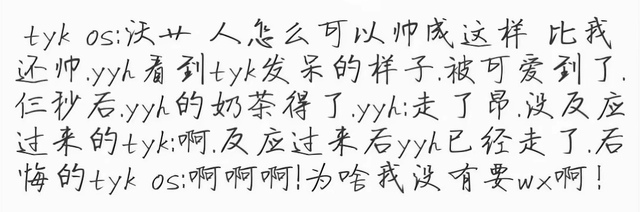 tyk os:沃艹 人怎么可以帅成这样 比我
还帅.yyh看到tyk发呆的样子.被可爱到了.
仨秒后.yyh的奶茶得了.yyh:走了昂.没反应
过来的tyk:啊.反应过来后yyh已经走了.后
悔的tyk os:啊啊啊!为啥我没有要wx啊!